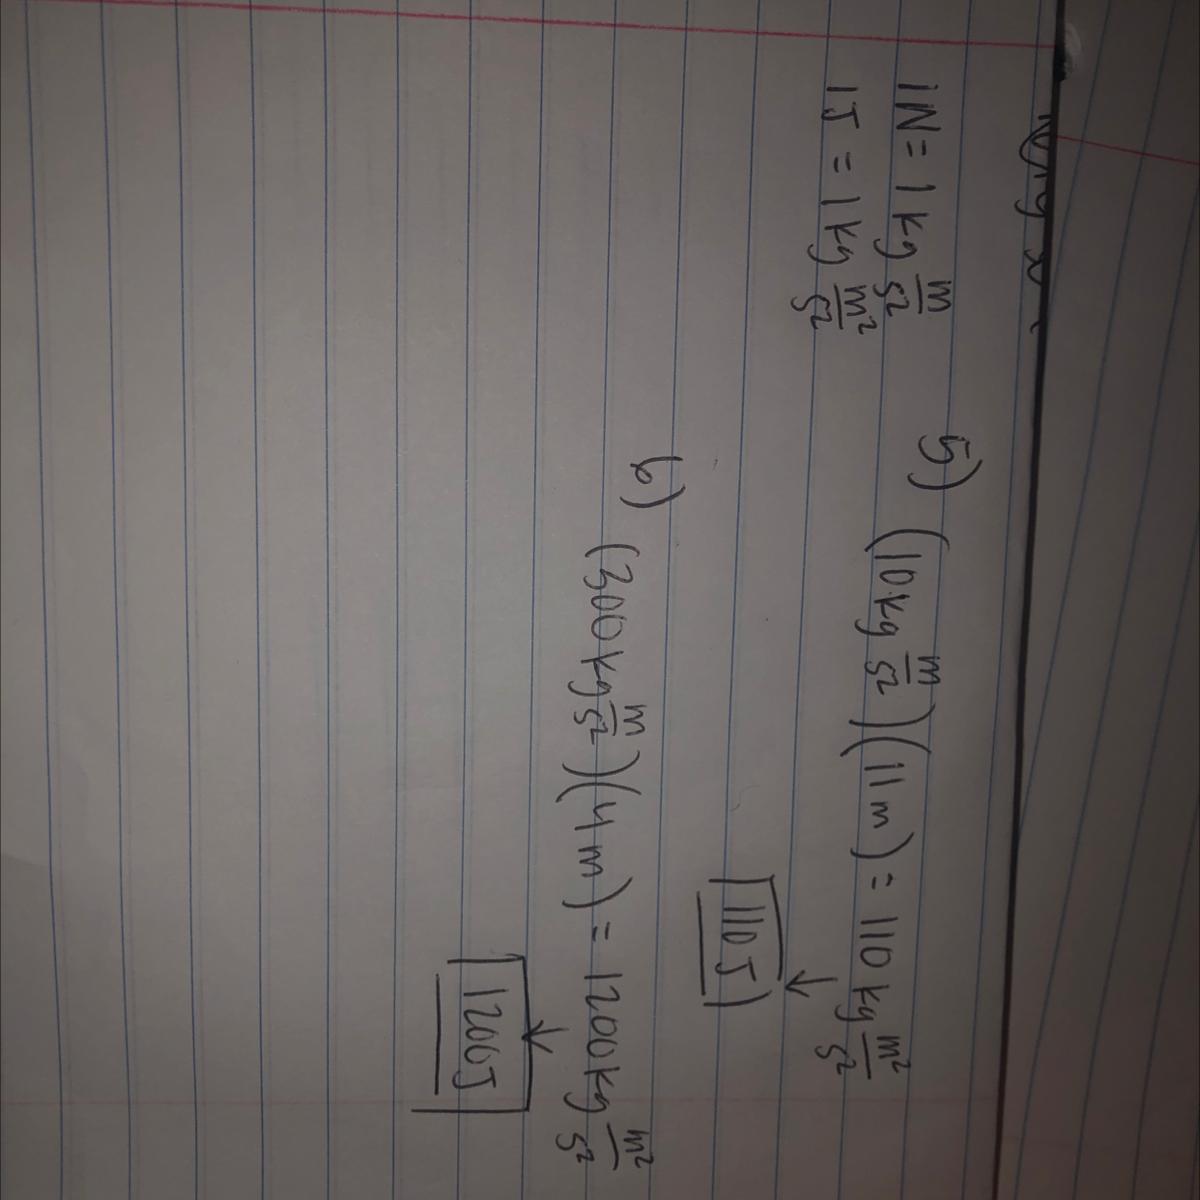 1N = 1 kg m/s²
1J = 1 kg m²/s²
5) (10 kg m/s²)(11 m) = 110 kg m²/s²
↓
110 J
6) (300 kg m/s²)(4 m) = 1200 kg m²/s²
↓
1200 J